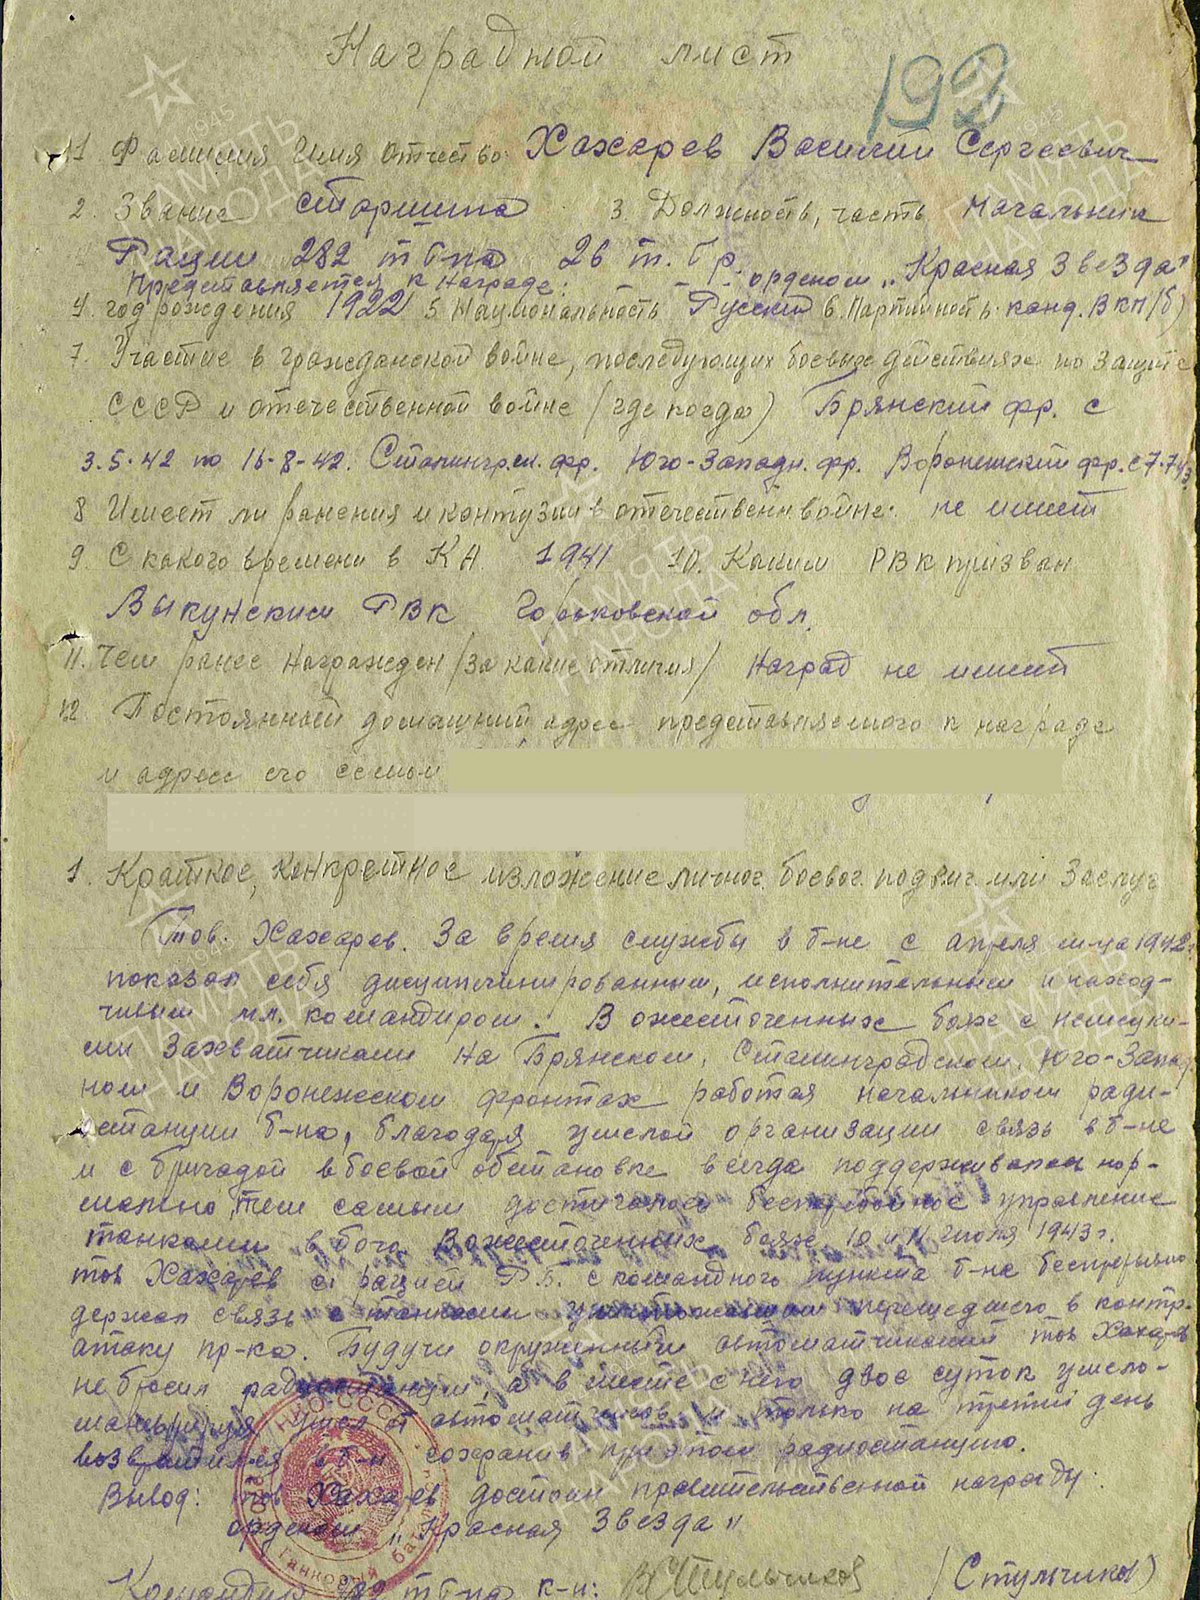 Наградной лист
192
1 Фамилия Имя Отчество Хахарев Василий Сергеевич
2. Звание старшина 3. Должность, часть Начальник
Рации 282 тб-на 26 т. бр.
Представляется к награде: орденом „Красная Звезда"
4. год рождения 1922 5 Национальность Русский 6. Партийность канд. ВКП/б)
7. Участие в гражданской войне, последующих боевых действиях по защите
СССР и отечественной войне (где когда) Брянский фр. с
3.5.42 по 16.8.42. Сталингр. фр. Юго-Западн. фр. Воронежский фр. с 7.7.43
8 Имеет ли ранения и контузии в отечественн войне. не имеет
9. С какого времени в КА. 1941 10. Каким РВК призван
Выкунским РВК Горьковской обл.
11. Чем ранее награжден /за какие отличия/ Наград не имеет
12 Постоянный домашний адрес представляемого к награде
и адрес его семьи
1. Краткое, конкретное изложение личног. боевог. подвиг. или заслуг
Тов. Хахарев. За время службы в б-не с апреля м-ца 1942г.
показал себя дисциплинированным, исполнительным и наход-
чивым мл. командиром. В ожесточенных боях с немецки-
ми захватчиками на Брянском, Сталинградском, Юго-Запад
ном и Воронежском фронтах работая начальником ради-
останции б-на, благодаря умелой организации связь в б-не
и с бригадой в боевой обстановке всегда поддерживалась нор-
мально, тем самым достигалось бесперебойное управление
танками в бою. В ожесточенных боях 10 и 11 июля 1943 г.
тов Хахарев с рацией Р.Б. с командного пункта б-на беспрерывно
держал связь с танками перешедшего в контр-
атаку пр-ка. Будучи окруженный автоматчиками тов Хахарев
не бросил радиостанции, а вместе с нею двое суток умело
маскируясь ушел от автоматчиков и только на третий день
возвратился в б-н сохранив при этом радиостанцию.
Вывод: тов Хахарев достоин правительственной награды:
орденом „Красная Звезда"
Командир 282 тб-на к-н: (Стульчиков)